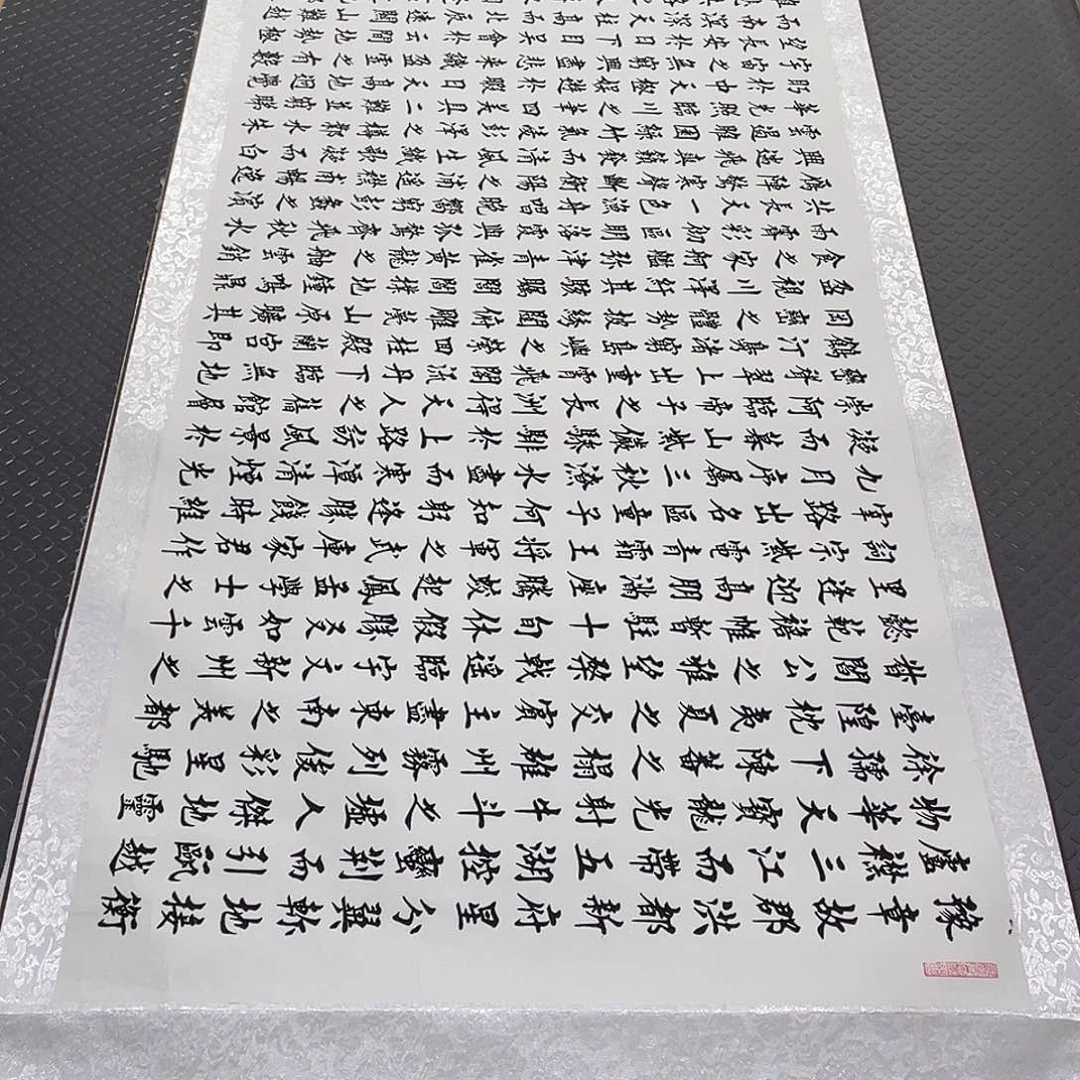 豫章故郡洪都新府星分翼軫地接衡
廬襟三江而帶五湖控蠻荊而引甌越
物華天寶龍光射牛斗之墟人傑地靈
徐孺下陳蕃之榻雄州霧列俊彩星馳
臺隍枕夷夏之交賓主盡東南之美都
督閻公之雅望棨戟遙臨宇文新州之
懿範襜帷暫駐十旬休假勝友如雲千
里逢迎高朋滿座騰蛟起鳳孟學士之
詞宗紫電青霜王將軍之武庫家君作
宰路出名區童子何知躬逢勝餞時維
九月序屬三秋潦水盡而寒潭清煙光
凝而暮山紫儼驂騑於上路訪風景於
崇阿臨帝子之長洲得天人之舊館層
巒聳翠上出重霄飛閣流丹下臨無地
鶴汀鳧渚窮島嶼之縈回桂殿蘭宮即
岡巒之體勢披繡闥俯雕甍山原曠其
盈視川澤紆其駭矚閭閻撲地鐘鳴鼎
食之家舸艦弥津青雀黃龍之舳雲銷
雨霽彩徹區明落霞與孤鶩齊飛秋水
共長天一色漁舟唱晚響窮彭蠡之濱
雁陣驚寒聲斷衡陽之浦遙襟甫暢逸
興遄飛爽籟發而清風生纖歌凝而白
雲遏睢園綠竹氣凌彭澤之樽鄴水朱
華光照臨川之筆四美具二難並窮睇
眄於中天極娛遊於暇日天高地迥覺
宇宙之無窮興盡悲來識盈虛之有數
望長安於日下目吳會於雲間地勢極
而南溟深天柱高而北辰遠關山難越